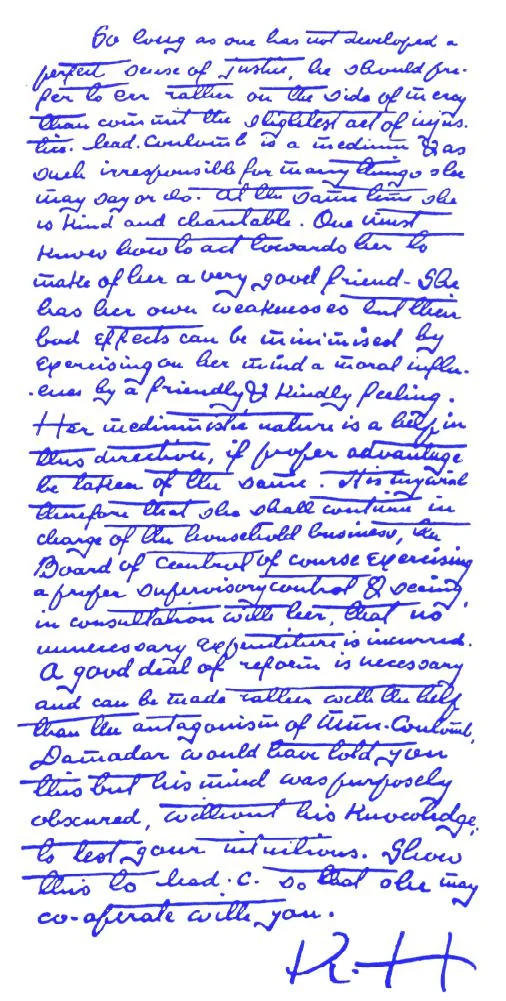 So long as one has not developed a
perfect sense of justice, he should pre-
fer to err rather on the side of mercy
than commit the slightest act of injus-
tice. Mad. Coulomb is a medium & as
such irresponsible for many things she
may say or do. At the same time she
is kind and charitable. One must
know how to act towards her to
make of her a very good friend - She
has her own weaknesses but their
bad effects can be minimised by
exercising on her mind a moral influ-
-ence by a friendly & kindly feeling.
Her mediumistic nature is a help in
this direction, if proper advantage
be taken of the same. It is my wish
therefore that she shall continue in
charge of the household business, the
Board of Control of course exercising
a proper supervisory control & seeing,
in consultation with her, that no
unnecessary expenditure is incurred.
A good deal of reform is necessary
and can be made rather with the help
than the antagonism of Mme. Coulomb.
Damodar would have told you
this but his mind was purposely
obscured, without his knowledge,
to test your intuitions. Show
this to Mad. C. so that she may
co-operate with you.
K. H